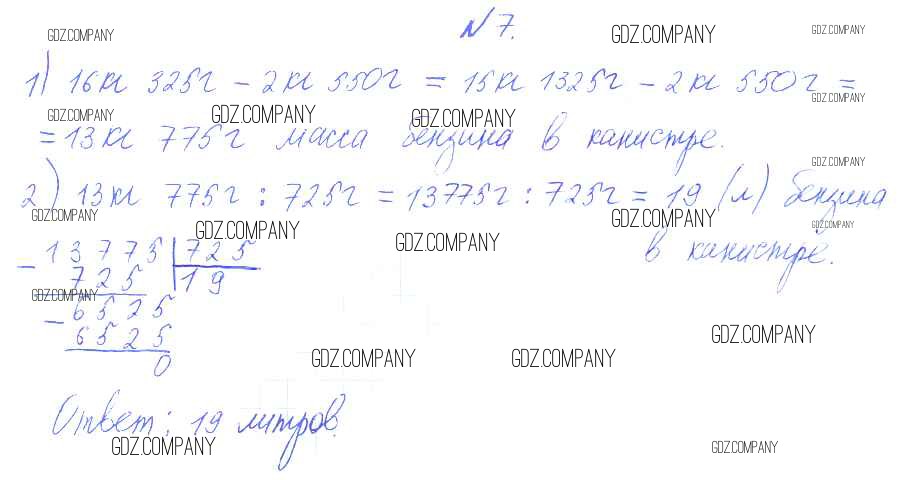 N 7.
1) 16 кг 325 г - 2 кг 550 г = 15 кг 1325 г - 2 кг 550 г =
= 13 кг 775 г масса бензина в канистре.
2) 13 кг 775 г : 725 г = 13775 г : 725 г = 19 (л) бензина
в канистре.
- 13775 | 725
725 | 19
- 6525
6525
0
Ответ: 19 литров.
GDZ.COMPANY GDZ.COMPANY GDZ.COMPANY
GDZ.COMPANY
GDZ.COMPANY GDZ.COMPANY GDZ.COMPANY
GDZ.COMPANY
GDZ.COMPANY GDZ.COMPANY GDZ.COMPANY
GDZ.COMPANY GDZ.COMPANY
GDZ.COMPANY
GDZ.COMPANY
GDZ.COMPANY GDZ.COMPANY
GDZ.COMPANY GDZ.COMPANY